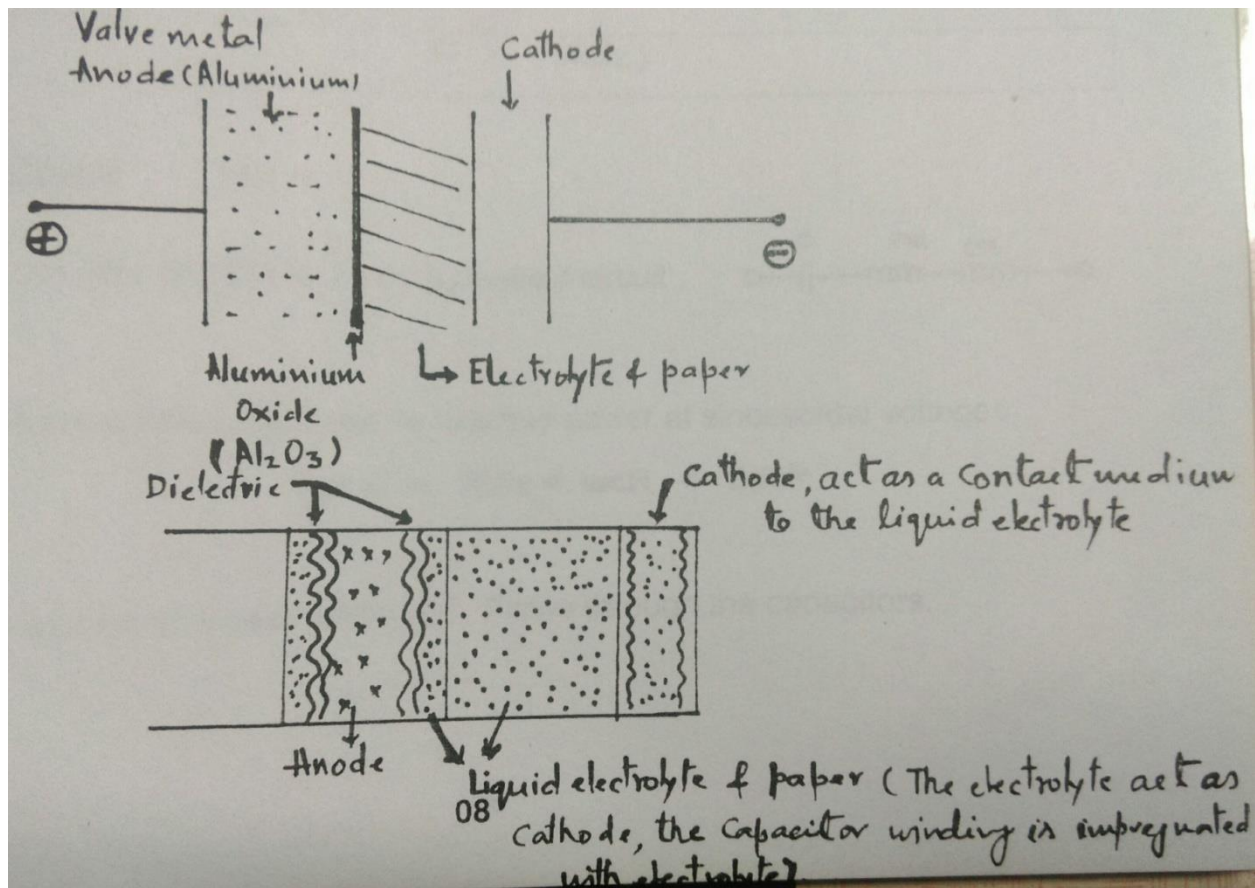 Valve metal
Anode (Aluminium)
Cathode
⊕
⊖
Aluminium
Oxide
(Al₂O₃)
Electrolyte & paper
Dielectric
Cathode, act as a contact medium
to the liquid electrolyte
Anode
Liquid electrolyte & paper (The electrolyte act as
08
cathode, the capacitor winding is impregnated
with electrolyte)